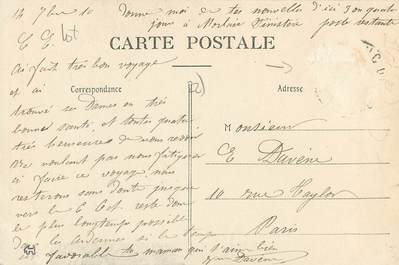 14 7bre 10 Donne moi de tes nouvelles d'ici 3 ou quatre
jours à Morlaix Finistère poste restante
C C. lot
CARTE POSTALE
ai fait très bon voyage
Correspondance
Adresse
et ai
trouvé ses Dames en très
bonne santé, et toutes quatre
très heureuses de nous revoir
ne veulent pas nous fatiguer
à faire ce voyage nous
resterons sans doute jusque
vers le 6 8bre reste donc
le plus longtemps possible
dans les Ardennes si le temps
favorable ta maman qui t'aime bien
Davène
Monsieur
E Davène
10 rue Taylor
Paris